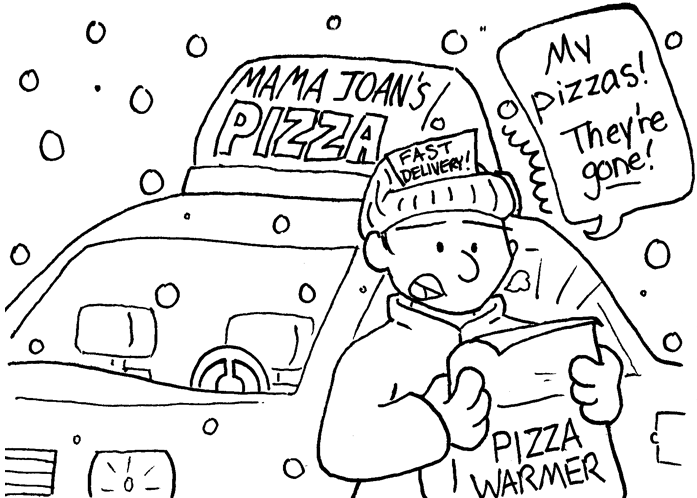 MAMA JOAN'S
PIZZA
FAST
DELIVERY!
My
pizzas!
They're
gone!
PIZZA
WARMER